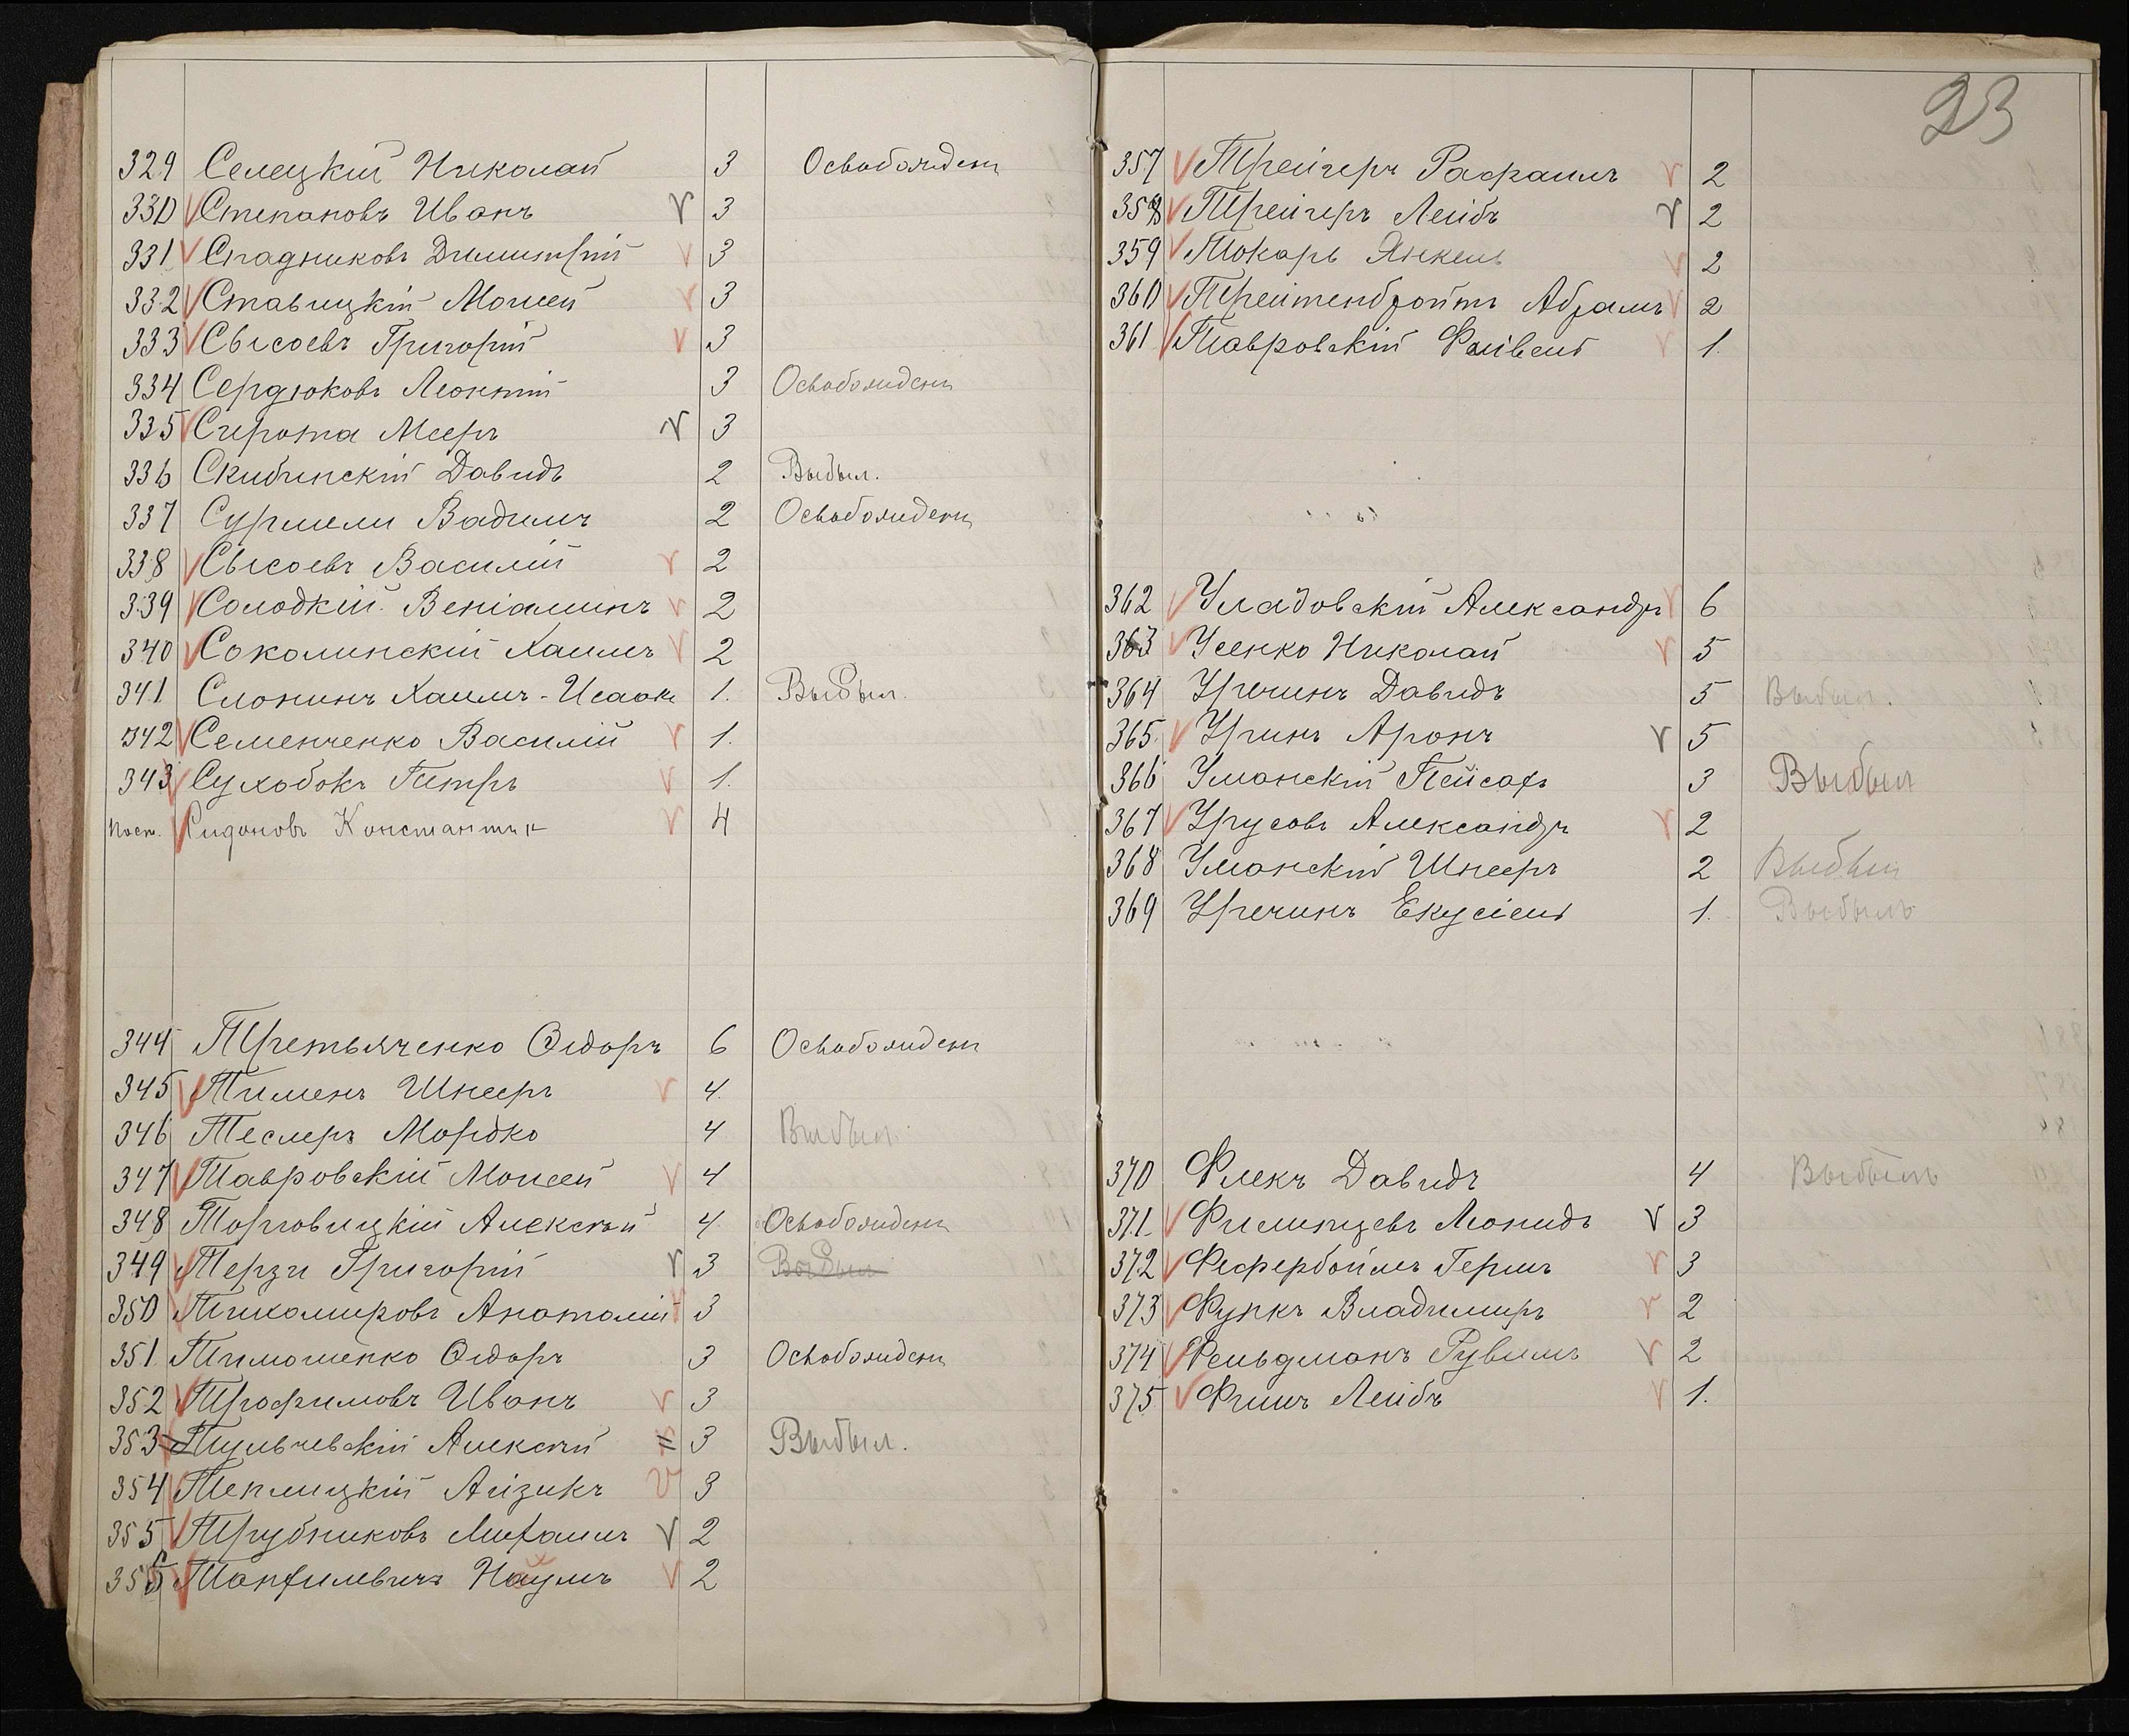 329 Селецкій Николай 3 Освобожденъ
330 Степановъ Иванъ 3
331 Спадниковъ Димитрій 3
332 Ставицкій Моисей 3
333 Сысоевъ Григорій 3
334 Сердюковъ Леонтій 3 Освобожденъ
335 Сирота Мееръ 3
336 Скибинскій Давидъ 2 Выбыл.
337 Сурмели Вадимъ 2 Освобожденъ
338 Сысоевъ Василій 2
339 Солодкій Веніаминъ 2
340 Соколинскій Хаимъ 2
341 Слонинъ Хаимъ-Исаакъ 1. Выбыл.
342 Семенченко Василій 1.
343 Суходокъ Петръ 1.
Пост. Константин 4
344 Третьяченко Ѳедоръ 6 Освобожденъ
345 Тименъ Шнееръ 4.
346 Теслеръ Мордко 4 Выбыл.
347 Тавровскій Моисей 4
348 Торговицкій Алексѣй 4. Освобожденъ
349 Терзи Григорій 3 Выбыл
350 Тихомировъ Анатолій 3
351. Тимошенко Ѳедоръ 3 Освобожденъ
352 Трофимовъ Иванъ 3
353 Тульчевскій Алексѣй 3 Выбыл.
354 Теплицкій Айзикъ 3
355 Трубниковъ Михаилъ 2
356 Танфилевичъ Наумъ 2
23
357 Трейгеръ Рафаилъ 2
358 Трейгеръ Лейбъ 2
359 Токарь Янкель 2
360 Трейтенбройтъ Абрамъ 2
361 Тавровскій Файвель 1.
362 Уладовскій Александръ 6
363 Усенко Николай 5
364 Уречинъ Давидъ 5 Выбыл.
365. Уринъ Аронъ 5
366 Уманскій Пейсахъ 3 Выбыл
367 Урусовъ Александръ 2
368 Уманскій Шнееръ 2 Выбыл
369 Уречинъ Екусіель 1. Выбылъ
370 Флекъ Давидъ 4 Выбылъ
371. Филипцевъ Леонидъ 3
372 Фефербоймъ Герш 3
373 Функъ Владимиръ 2
374 Фельдманъ Рувимъ 2
375 Фишъ Лейбъ 1.